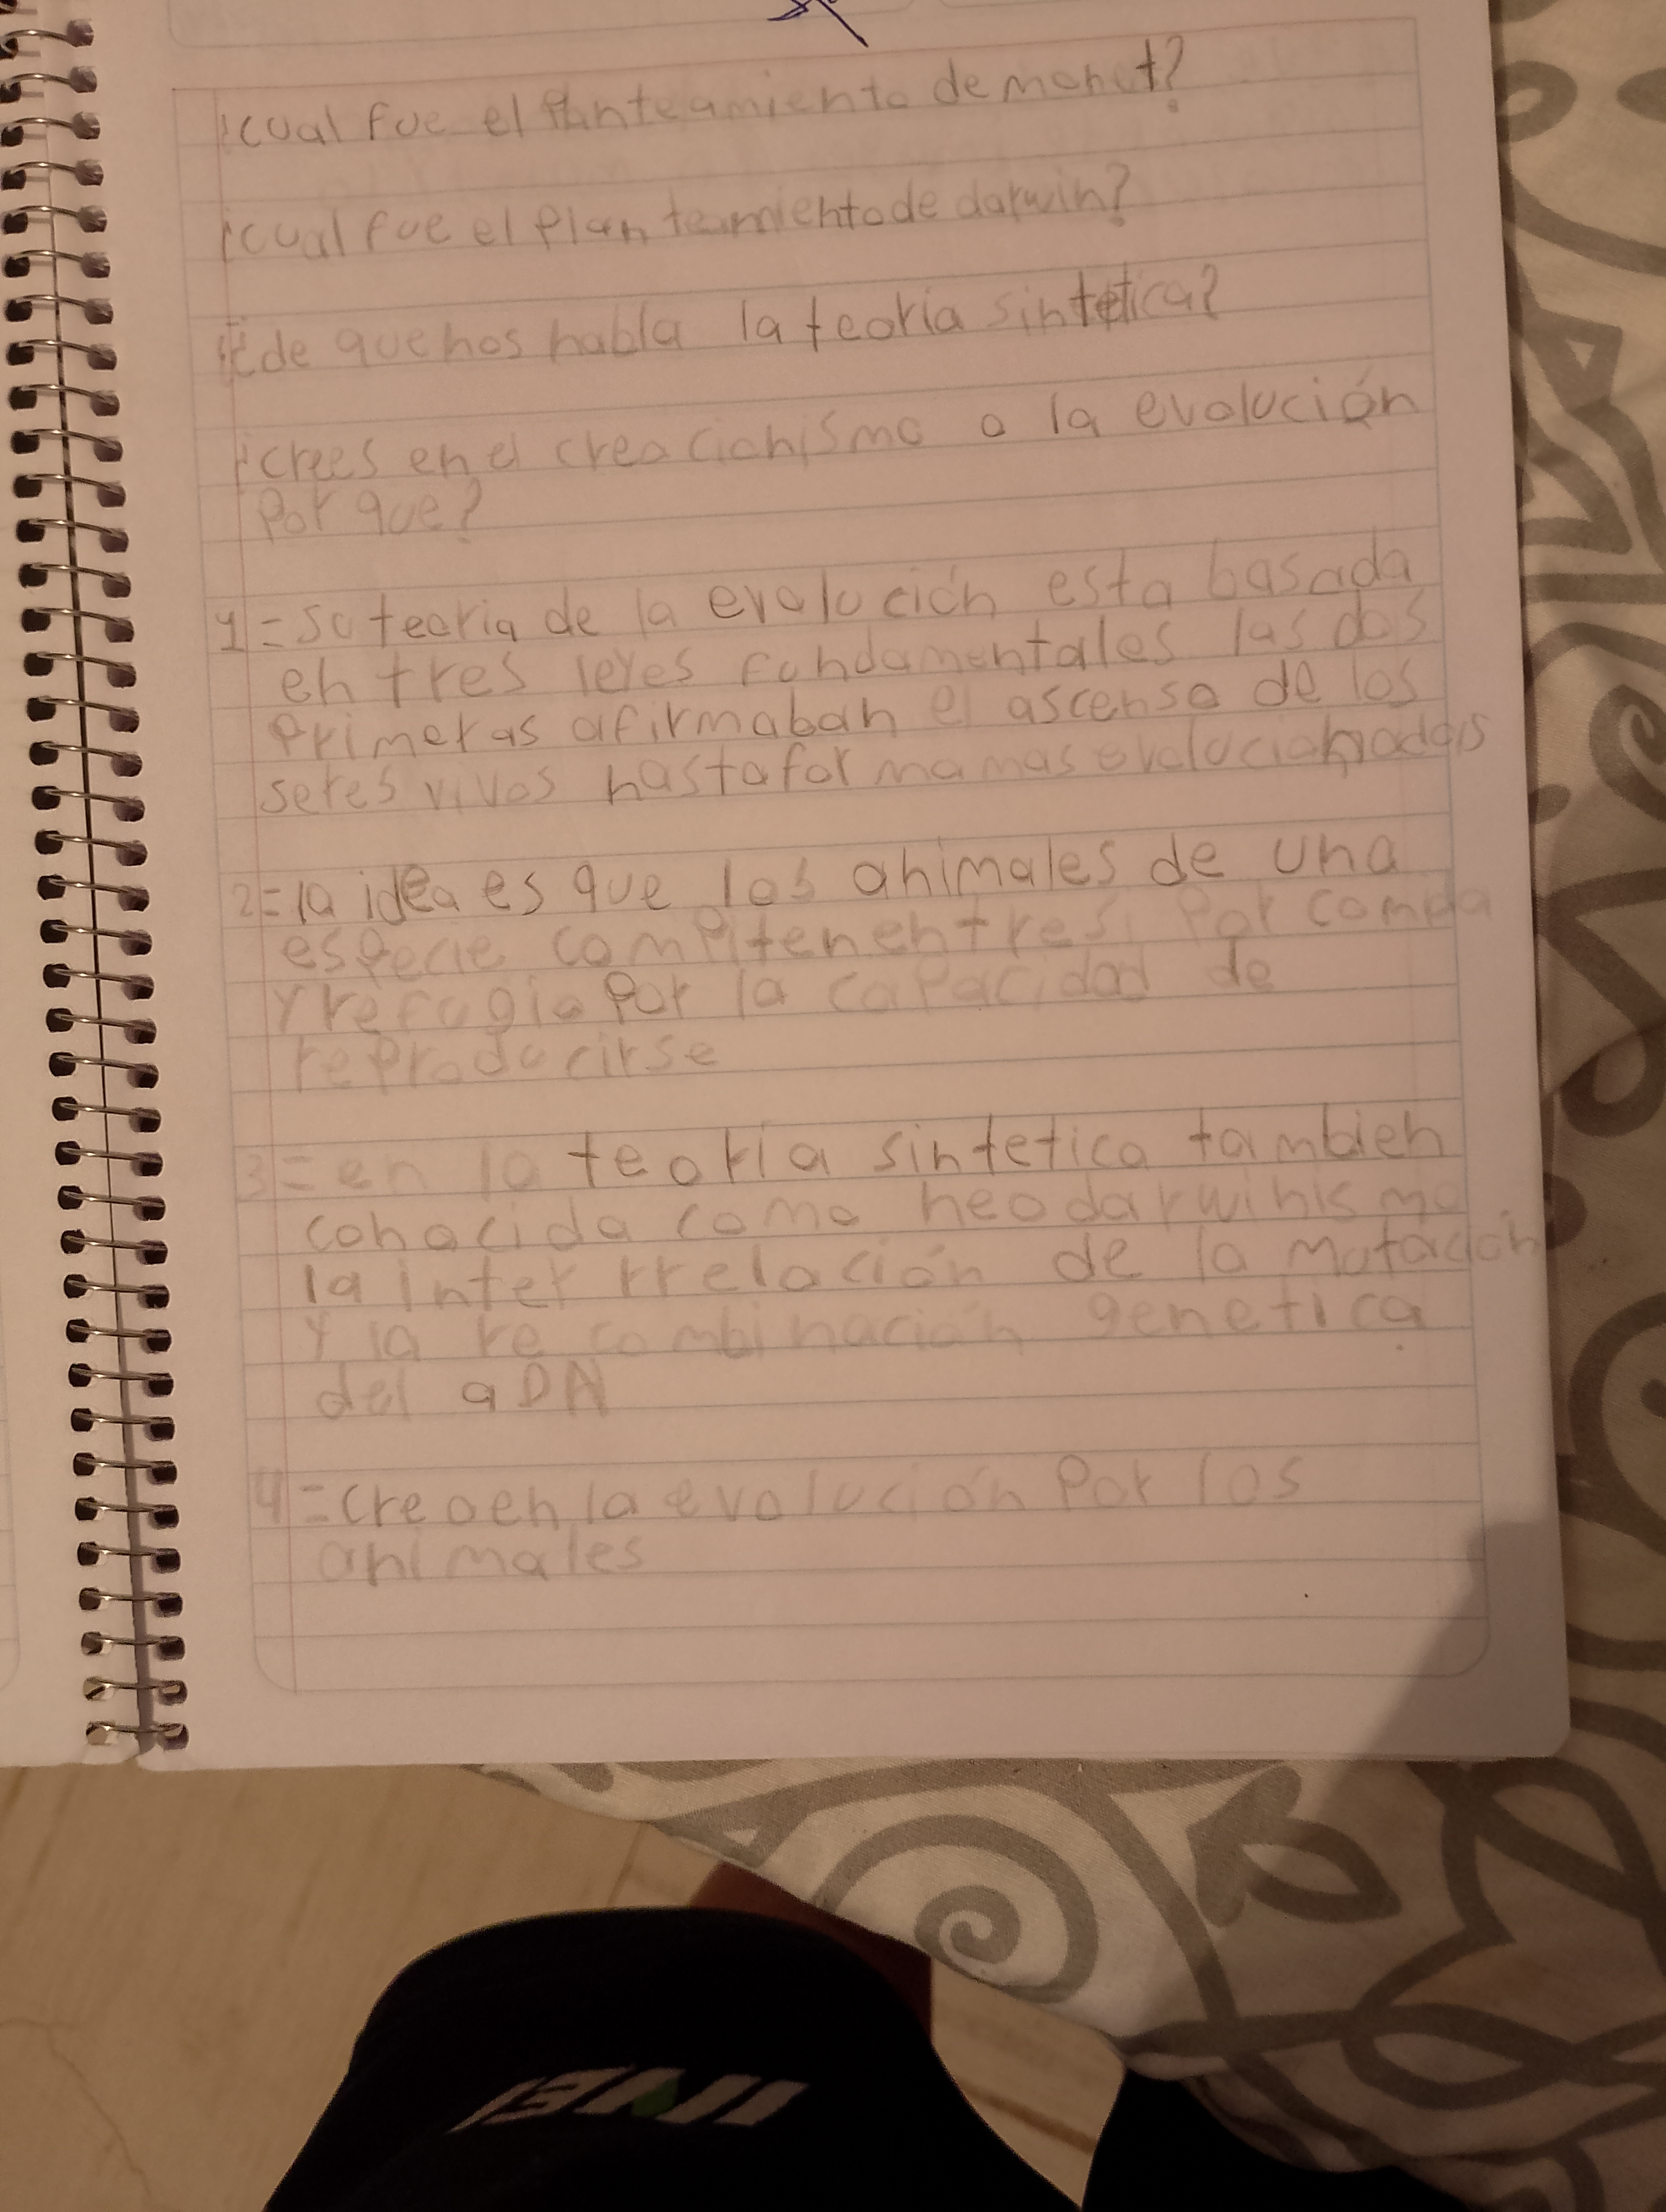 ¿cual fue el Planteamiento de monet?
¿cual fue el Planteamiento de darwin?
¿de que nos habla la teoría sintetica?
¿crees en el creacionismo o la evolución
Por que?
1=su teoria de la evolución esta basada
en tres leyes fundamentales las dos
Primeras afirmaban el ascenso de los
seres vivos hasta forma mas evolucionadas
2=la idea es que los animales de una
especie compiten entre si Por comida
y refugio Por la capacidad de
reproducirse
3=en la teoría sintetica tambien
conocida como neodarwinismo
la inter rrelación de la mutación
y la re combinación genetica
del aDN
4=creo en la evolución Por los
animales